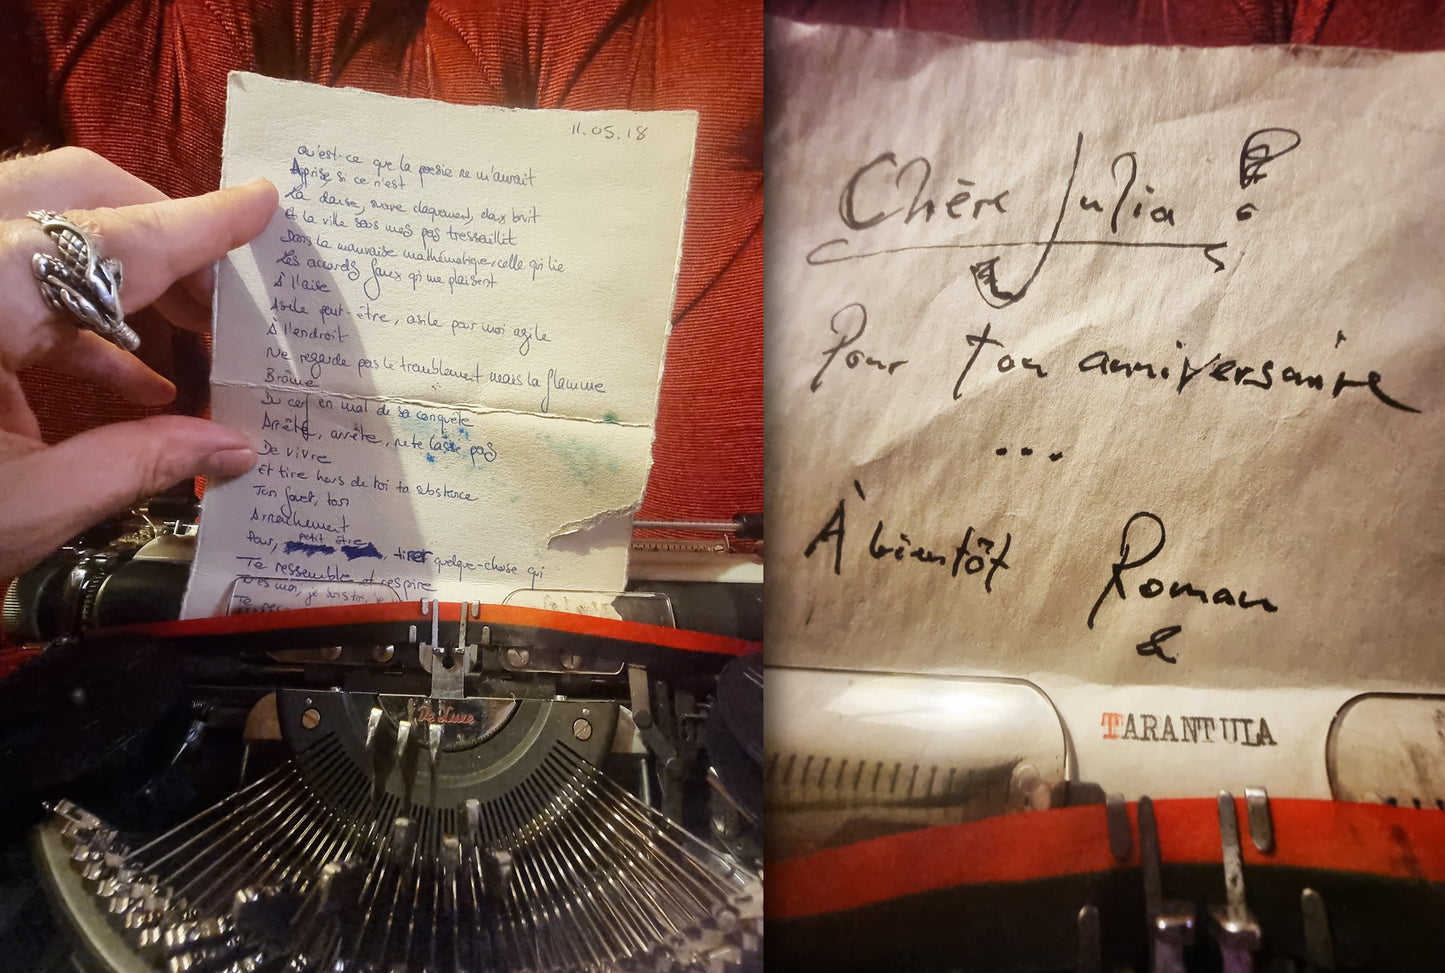 11.05.18
Qu'est-ce que la poésie ne m'aurait
Apprise si ce n'est
La danse, suave claquement, doux bruit
Et la ville sous mes pas tressaillit
Dans la mauvaise mathématique, celle qui lie
Les accords faux qui me plaisent
À l'aise
Asile peut-être, asile pour moi agile
À l'endroit
Ne regarde pas le tremblement mais la flamme
Brâme
Du cerf en mal de sa conquête
Arrête, arrête, ne te lasse pas
De vivre
Et tire hors de toi ta substance
Ton jouet, ton
Arrachement
Pour, petit être, tirer quelque-chose qui
Te ressemble et respire
je suis toi, je
De Luxe
Chère Julia !
Pour ton anniversaire
...
À bientôt Roman
&
TARANTULA